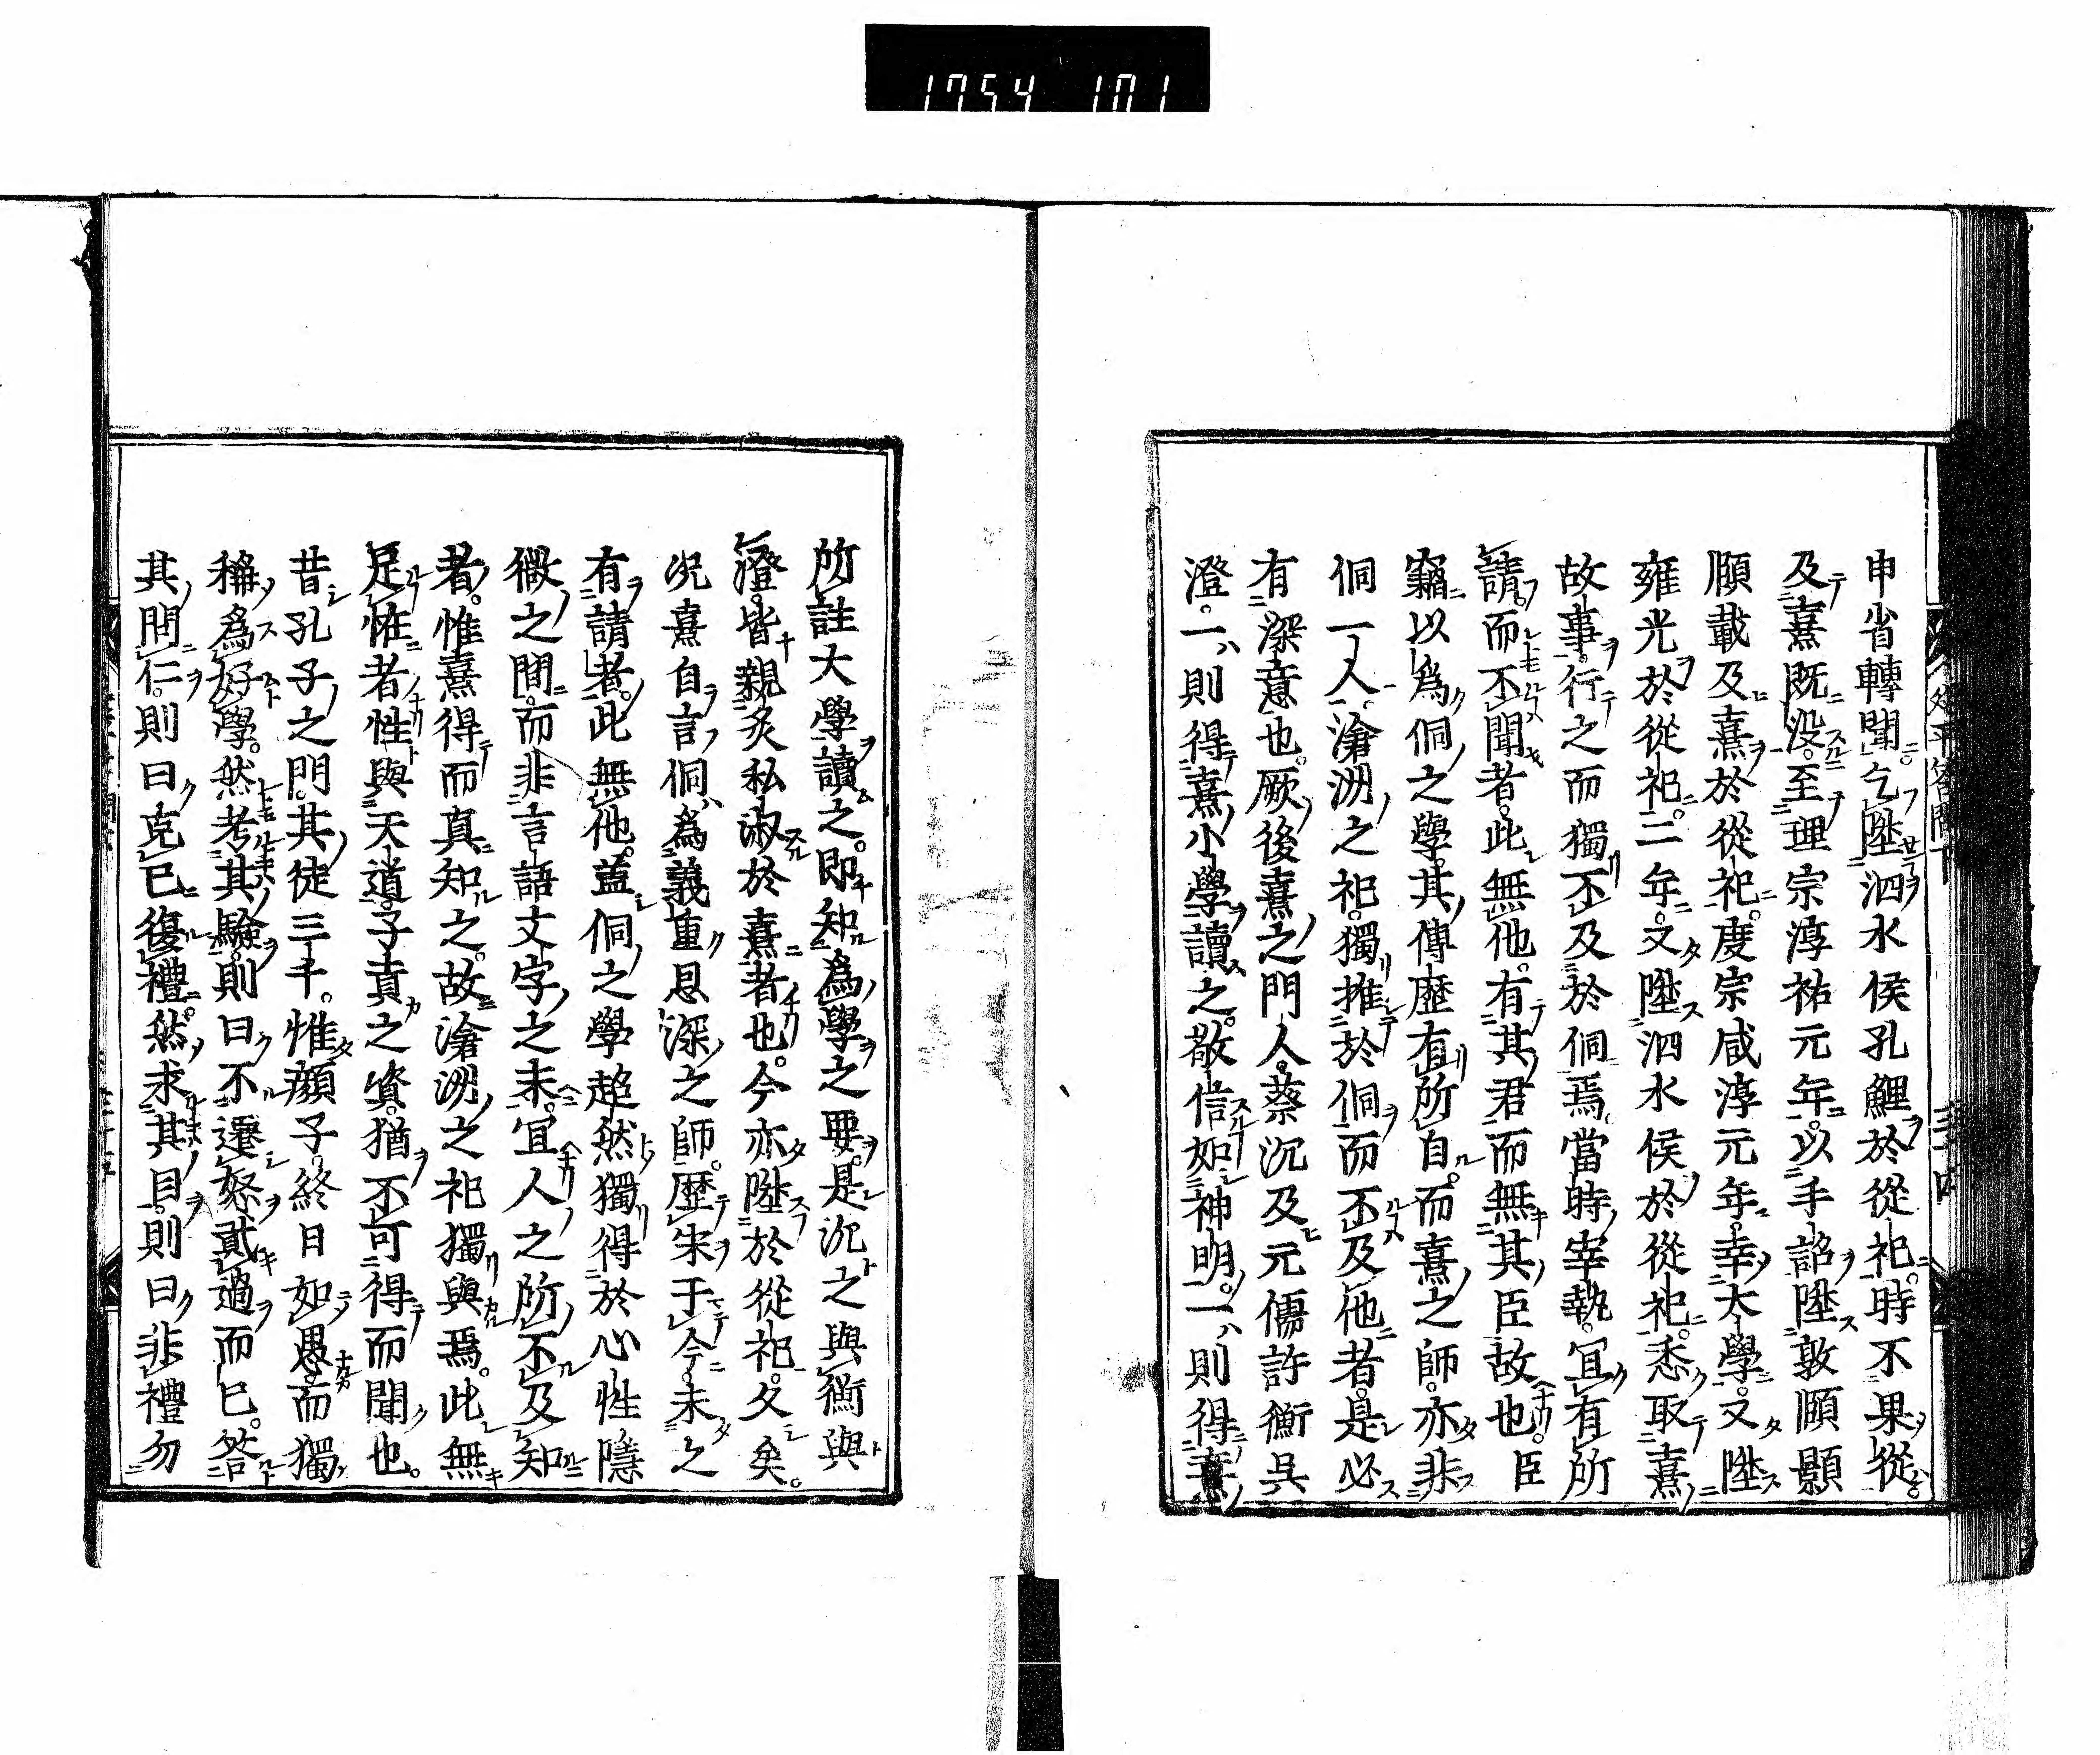 1754 101
申省轉聞。乞陞泗水侯孔鯉於從祀。時不果從。
及熹既没。至理宗淳祐元年。以手詔陞敦頤顥
頤載及熹於從祀。度宗咸淳元年。幸大學。又陞
雍光於從祀。二年。又陞泗水侯於從祀。悉取熹
故事。行之而獨不及於侗焉。當時宰執。宜有所
請。而不聞者。此無他。有其君而無其臣故也。臣
竊以爲侗之學。其傳歷有所自。而熹之師。亦非
侗一人。滄洲之祀。獨推於侗而不及他者。是必
有深意也。厥後熹之門人。蔡沉及元儒許衡吳
澄。一則得熹小學讀之。敬信如神明。一則得熹
所註大學讀之。即知爲學之要。是沉之與衡與
澄。皆親炙私淑於熹者也。今亦陞於從祀。久矣。
况熹自言侗爲義重恩深之師。歷宋于今。未之
有請者。此無他。蓋侗之學超然獨得於心性隱
微之間。而非言語文字之末。宜人之所不及知
者。惟熹得而真知之。故滄洲之祀獨與焉。此無
足怪者性與天道。子貢之資。猶不可得而聞也。
昔孔子之門。其徒三千。惟顔子。終日如愚。而獨
稱爲好學。然考其驗。則曰不遷怒貳過而已。答
其問仁。則曰克已復禮。然求其目。則曰非禮勿
延平答問下
三十四